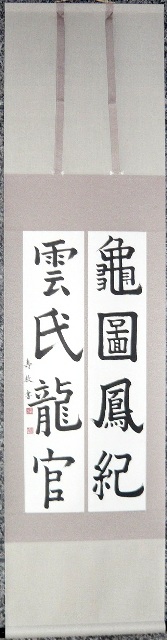 龜圖鳳紀
雲氏龍官